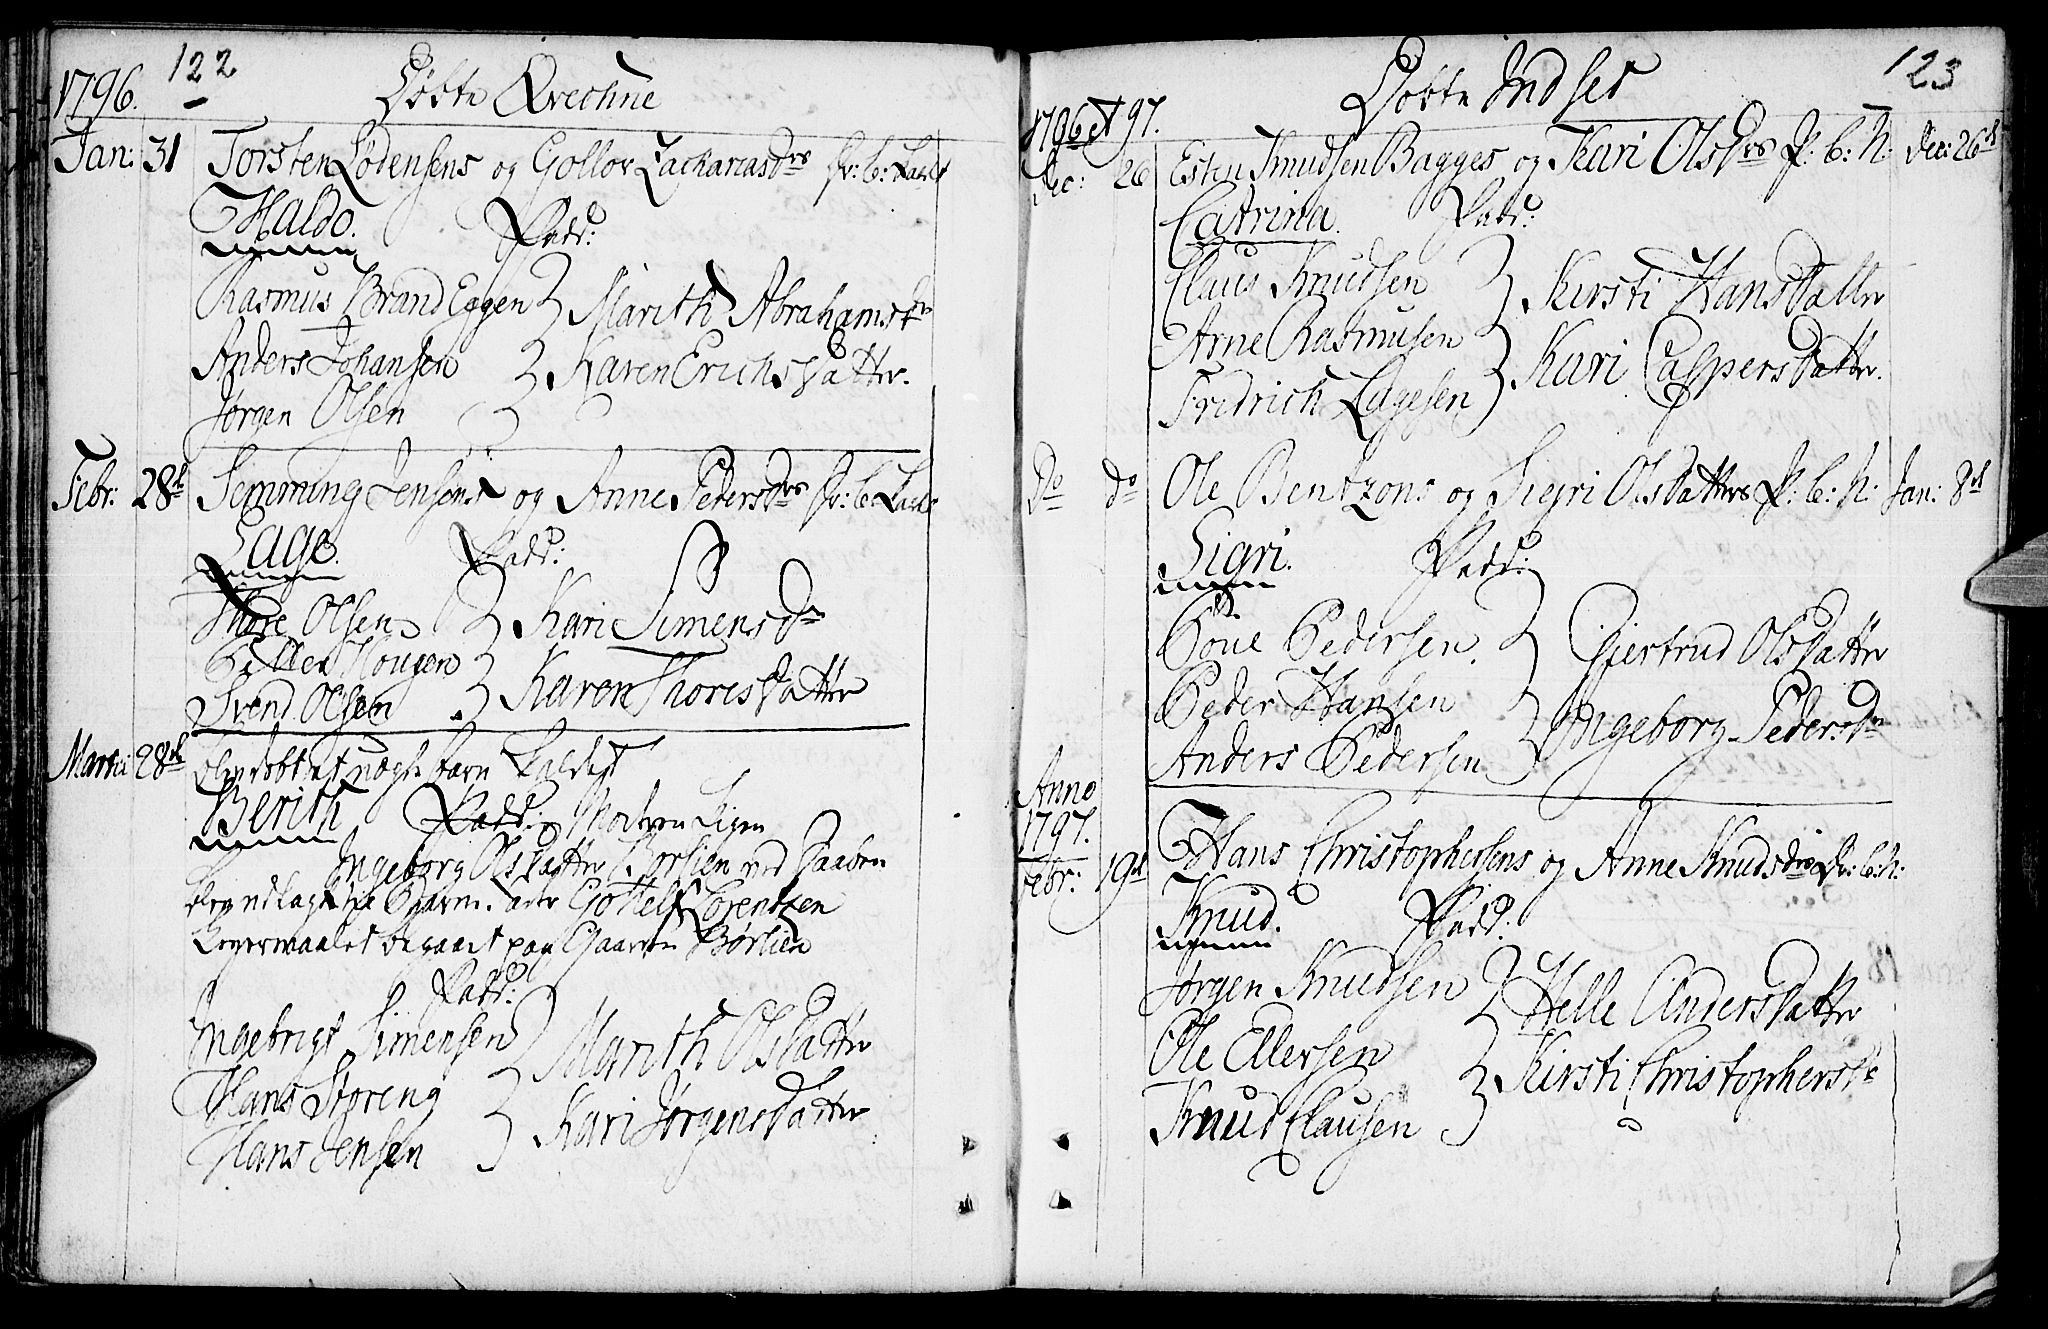 122
1796. Døbte Qvechne
Jan: 31 Torsten Lødensens og Gollov Zachariasdrs
Haldo. Fadd:
Rasmus Brand Eggen Marith Abrahamsdr
Anders Johansen Karen Erichsdatter.
Jørgen Olsen
Febr: 28d Semming Jensens og Anne Pedersdrs
Lage. Fadd:
Thore Olsen Kari Simensdr
Peder Hougen Karen Thoresdatter
Svend Olsen
Martii 28de blev døbt et uægte barn kaldet
Berith Moderen Pigen
Ingeborg Olsdatter Børlien ved Daaben
blev udlagt til Barne fader Gottelf Lorentzen
Leyermaalet begaaet paa Gaarden Børlien
Fadd:
Ingebrigt Simensen Marith Olsdatter
Hans Støreng Kari Jørgensdatter
Hans Jensen
123
1796 et 97. Døbte Indset
Dec: 26 Esten Knudsen Bagges og Kari Olsdrs f: b: h: Dec: 26d
Catrina. Fadd:
Claus Knudsen Kirsti Hansdatter
Arne Rasmusen Kari Caspersdatter.
Fridrich Lagesen
Do do Ole Bentzons og Sigri Olsdatters f: b: h: Jan: 8d
Sigri. Fadd:
Poul Pedersen. Giertrud Olsdatter
Peder Hansen Ingeborg Pedersdr
Anders Pedersen
Anno
1797.
Febr: 19d Hans Christophersens og Anne Knudsdrs b: h:
Knud. Fadd:
Jørgen Knudsen Helle Andersdatter
Ole Ellersen Kirsti Christophersdr
Knud Clausen